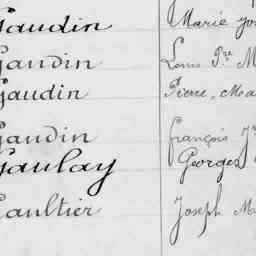 Gaudin Marie Jos
Gaudin Louis Pre M
Gaudin Pierre, Ma
Gaudin François J
Gaulay Georges
Gaultier Joseph Ma